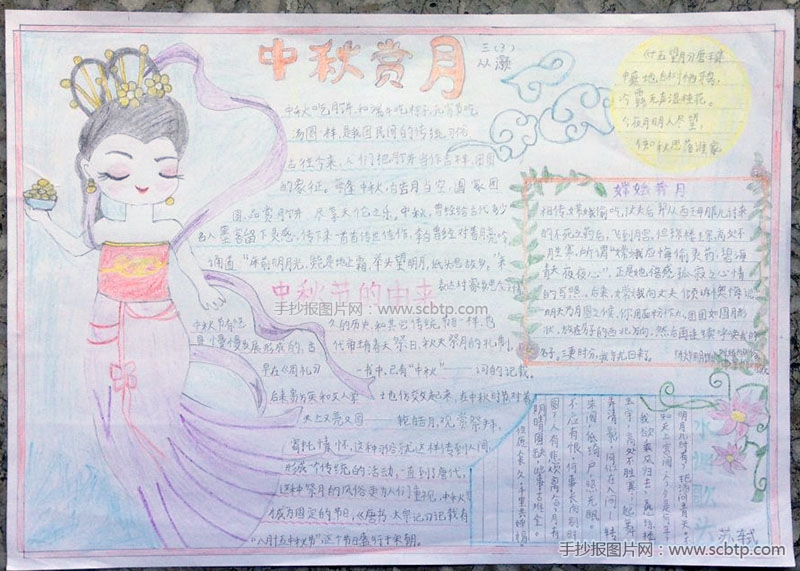 中秋赏月
三(3)
中秋吃月饼和端午吃粽子、元宵节吃
汤圆一样,是我国民间的传统习俗
古往今来,人们把月饼当作吉祥、团圆
的象征。每逢中秋,皓月当空,阖家团
圆,品赏月饼,尽享天伦之乐。中秋,曾经给古代多少
名人墨客留下灵感,传下来一首首传世佳作,李白曾经对着月亮
诵道:“床前明月光,疑是地上霜,举头望明月,低头思故乡。”来
表达对家乡思念
中秋节的由来
中秋节有悠
久的历史,和其它传统节日一样,也
是慢慢发展形成的,古
代帝王有春天祭日,秋天祭月的礼制,
早在《周礼》
一书中,已有“中秋”一词的记载。
后来贵族和文人学
士也仿效起来,在中秋时节对着
天上又亮又圆
一轮皓月,观赏祭拜,
寄托情怀,这种习俗就这样传到人间,
形成一个传统的活动,一直到了唐代,
这种祭月的风俗更为人们重视,中秋节
成为固定的节日,《唐书·太宗记》记载有
“八月十五中秋节”,这个节日盛行于宋朝。
中庭地白树栖鸦,
冷露无声湿桂花。
今夜月明人尽望,
不知秋思落谁家
嫦娥奔月
相传,嫦娥偷吃
的不死之药后,飞到月宫,但琼楼玉宇,高处不
胜寒,所谓“嫦娥应悔偷灵药,碧海
青天夜夜心”,正是她倍感孤寂之心情
的写照,后来,嫦娥向丈夫倾诉懊悔说:
明天乃月圆之候,你用面粉作丸,团团如圆月形
状,放在屋子的西北方向,然后再连续呼唤我的
名字,三更时分,我就可以回来。
水调歌头
苏轼
明月几时有?把酒问青天。不
知天上宫阙,今夕是何年。
我欲乘风归去,又恐琼楼
玉宇,高处不胜寒。起舞
弄清影,何似在人间。转
朱阁,低绮户,照无眠。
不应有恨,何事长向别时
圆?人有悲欢离合,月有
阴晴圆缺,此事古难全。
但愿人长久,千里共婵娟。
手抄报图片网:www.scbtp.com
手抄报图片网:www.scbtp.com